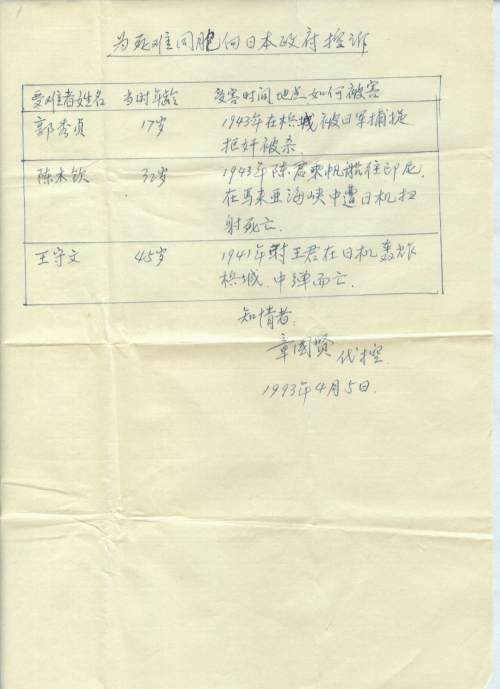 为死难同胞向日本政府控诉
受难者姓名 当时年龄 受害时间地点如何被害
郭秀贞 17岁 1943年在槟城被日军捕捉
拒奸被杀.
陈木钦 32岁 1943年陈君乘帆船往印尼.
在馬来亜海峡中遭日机扫
射死亡.
王守文 45岁 1941年时王君在日机轰炸
槟城.中弹而亡.
知情者.
章國贤 代控.
1993年4月5日.